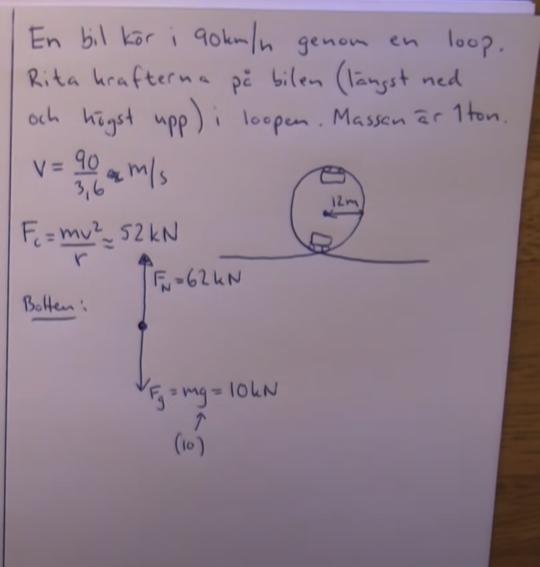 En bil kör i 90km/h genom en loop.
Rita krafterna på bilen (längst ned
och högst upp) i loopen. Massan är 1ton.
V = 90/3,6 m/s
12m
F_c = mv²/r ≈ 52kN
F_N = 62kN
Botten:
F_g = mg = 10kN
↑
(10)